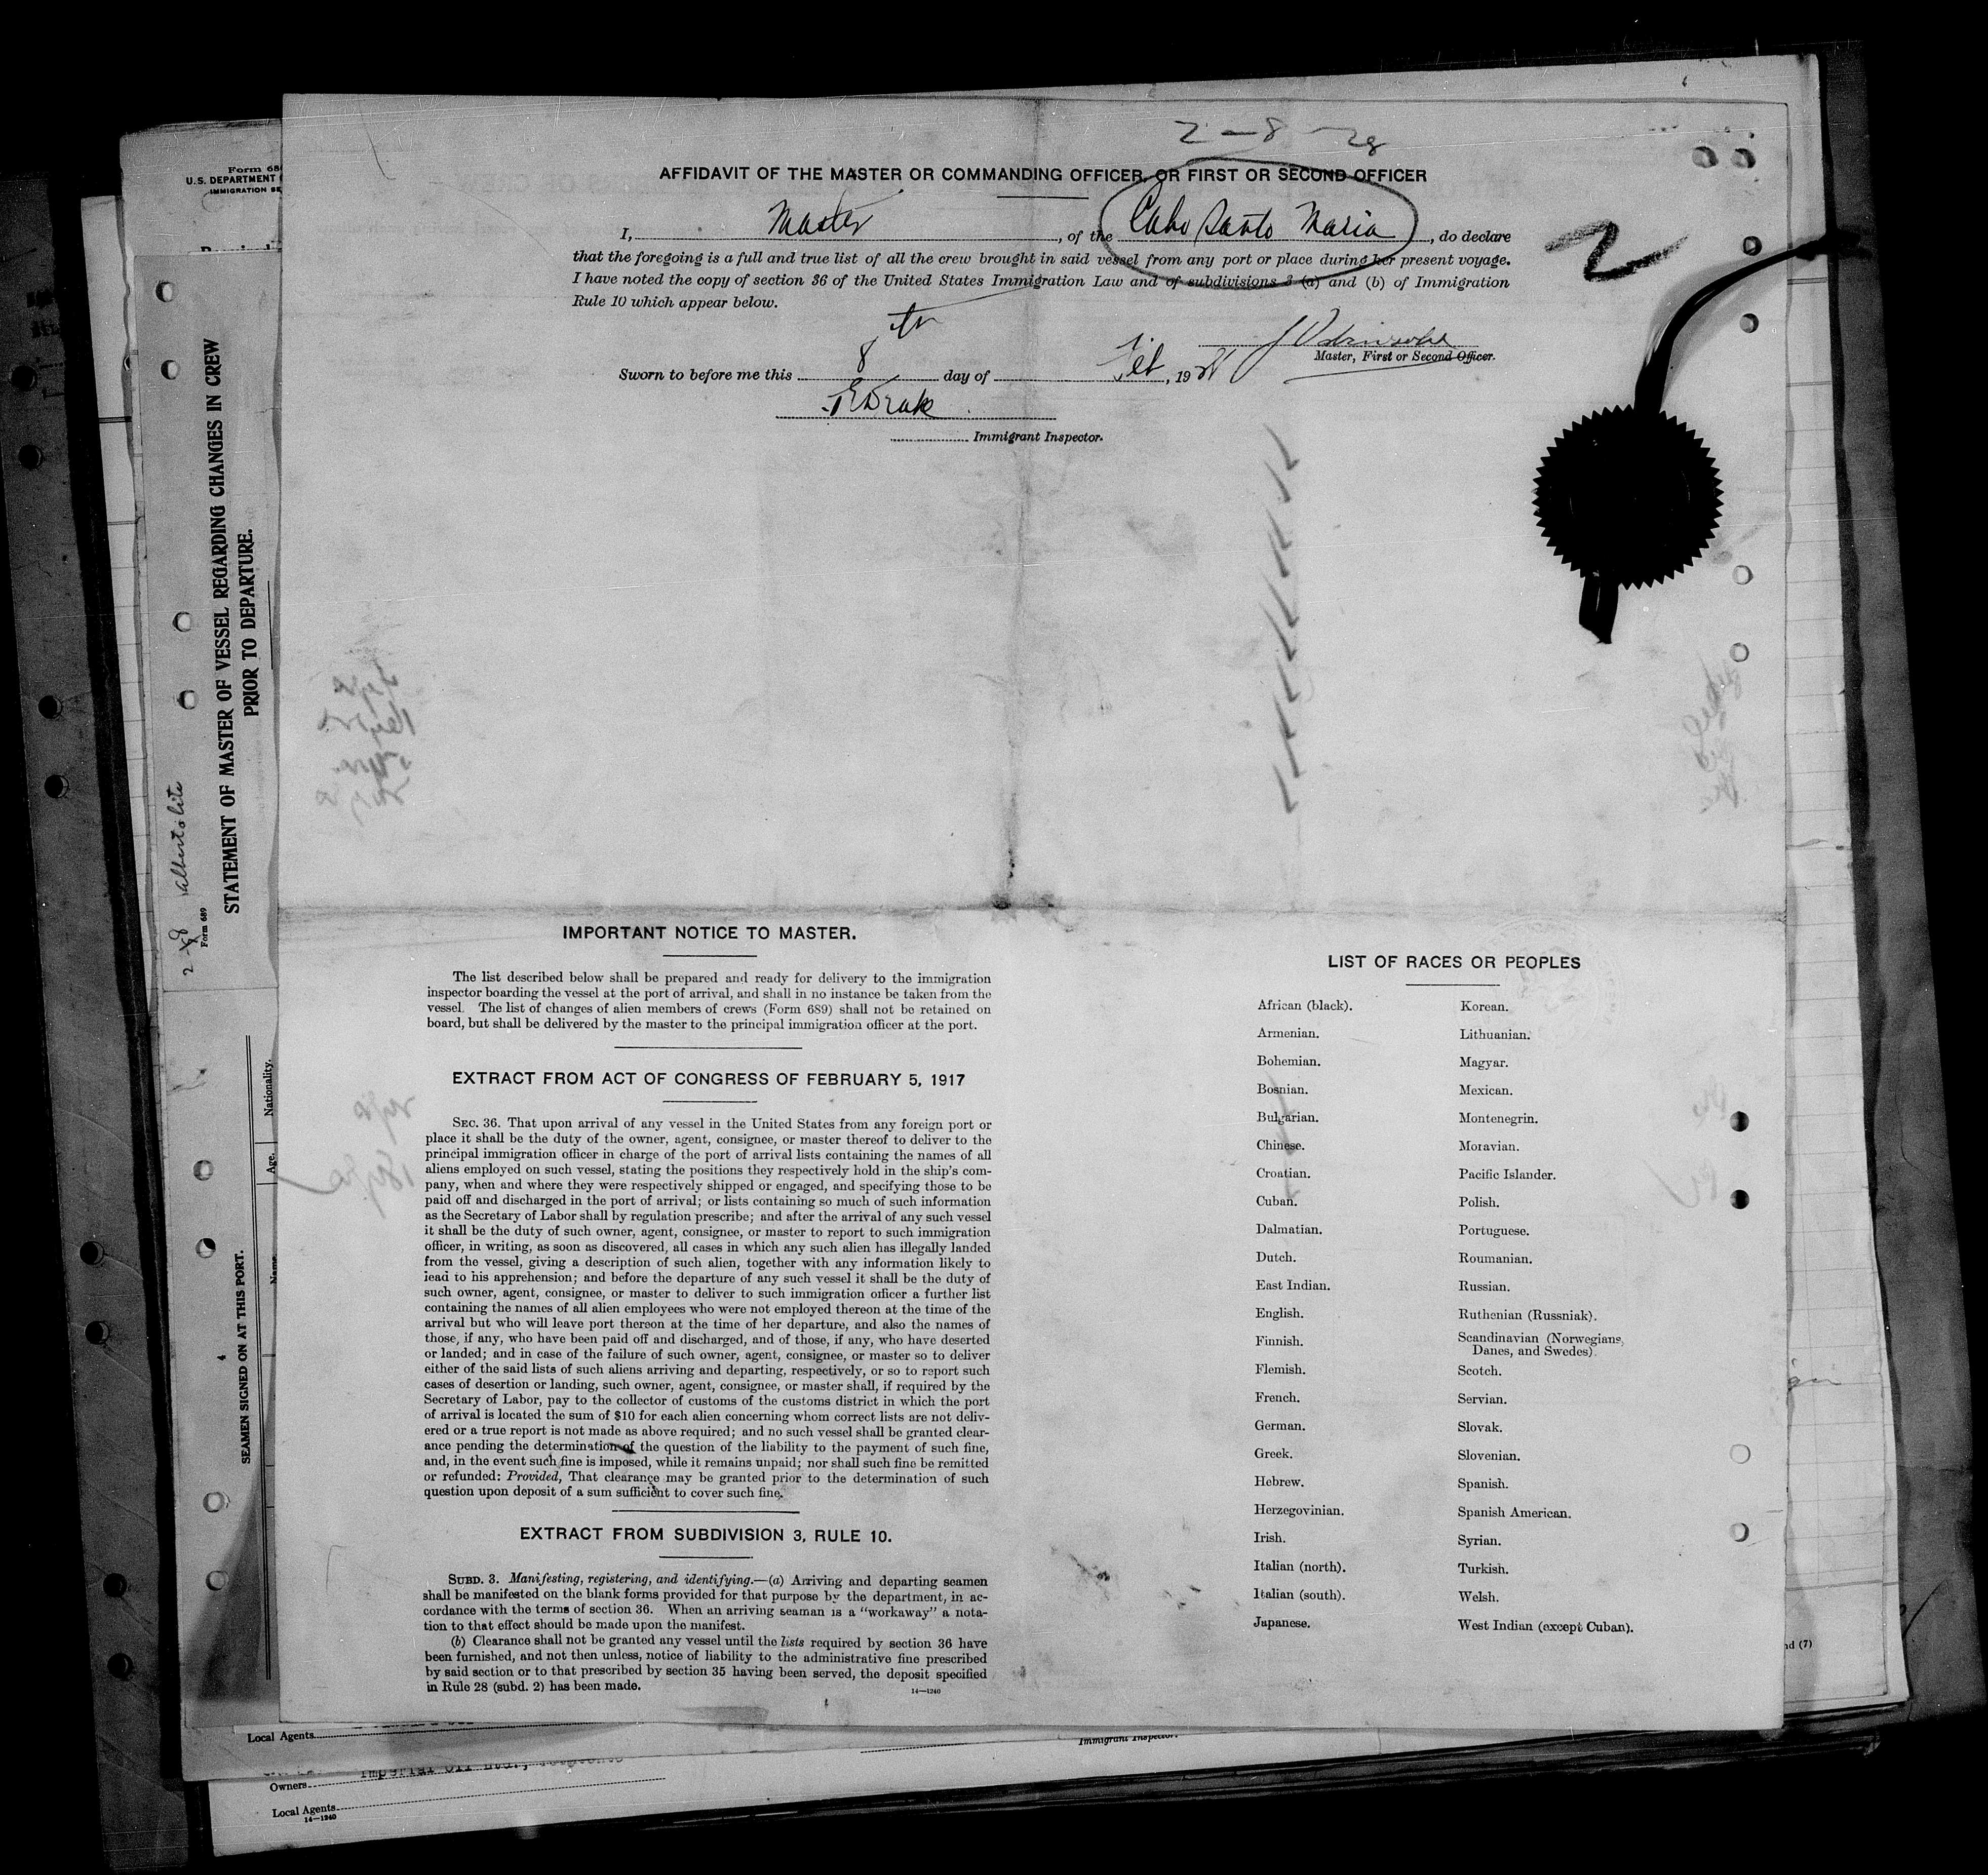 2-8-28
AFFIDAVIT OF THE MASTER OR COMMANDING OFFICER, OR FIRST OR SECOND OFFICER
I, Master, of the Cabo Santo Maria, do declare
that the foregoing is a full and true list of all the crew brought in said vessel from any port or place during her present voyage.
I have noted the copy of section 36 of the United States Immigration Law and of subdivisions 3 (a) and (b) of Immigration
Rule 10 which appear below.
2
Master, First or Second Officer.
Sworn to before me this 8th day of Feb, 1928
Drake
Immigrant Inspector.
IMPORTANT NOTICE TO MASTER.
The list described below shall be prepared and ready for delivery to the immigration
inspector boarding the vessel at the port of arrival, and shall in no instance be taken from the
vessel. The list of changes of alien members of crews (Form 689) shall not be retained on
board, but shall be delivered by the master to the principal immigration officer at the port.
EXTRACT FROM ACT OF CONGRESS OF FEBRUARY 5, 1917
SEC. 36. That upon arrival of any vessel in the United States from any foreign port or
place it shall be the duty of the owner, agent, consignee, or master thereof to deliver to the
principal immigration officer in charge of the port of arrival lists containing the names of all
aliens employed on such vessel, stating the positions they respectively hold in the ship's com-
pany, when and where they were respectively shipped or engaged, and specifying those to be
paid off and discharged in the port of arrival; or lists containing so much of such information
as the Secretary of Labor shall by regulation prescribe; and after the arrival of any such vessel
it shall be the duty of such owner, agent, consignee, or master to report to such immigration
officer, in writing, as soon as discovered, all cases in which any such alien has illegally landed
from the vessel, giving a description of such alien, together with any information likely to
lead to his apprehension; and before the departure of any such vessel it shall be the duty of
such owner, agent, consignee, or master to deliver to such immigration officer a further list
containing the names of all alien employees who were not employed thereon at the time of the
arrival but who will leave port thereon at the time of her departure, and also the names of
those, if any, who have been paid off and discharged, and of those, if any, who have deserted
or landed; and in case of the failure of such owner, agent, consignee, or master so to deliver
either of the said lists of such aliens arriving and departing, respectively, or so to report such
cases of desertion or landing, such owner, agent, consignee, or master shall, if required by the
Secretary of Labor, pay to the collector of customs of the customs district in which the port
of arrival is located the sum of $10 for each alien concerning whom correct lists are not deliv-
ered or a true report is not made as above required; and no such vessel shall be granted clear-
ance pending the determination of the question of the liability to the payment of such fine,
and, in the event such fine is imposed, while it remains unpaid; nor shall such fine be remitted
or refunded: Provided, That clearance may be granted prior to the determination of such
question upon deposit of a sum sufficient to cover such fine.
EXTRACT FROM SUBDIVISION 3, RULE 10.
SUBD. 3. Manifesting, registering, and identifying.—(a) Arriving and departing seamen
shall be manifested on the blank forms provided for that purpose by the department, in ac-
cordance with the terms of section 36. When an arriving seaman is a "workaway" a nota-
tion to that effect should be made upon the manifest.
(b) Clearance shall not be granted any vessel until the lists required by section 36 have
been furnished, and not then unless, notice of liability to the administrative fine prescribed
by said section or to that prescribed by section 35 having been served, the deposit specified
in Rule 28 (subd. 2) has been made.
14—1240
LIST OF RACES OR PEOPLES
African (black).
Armenian.
Bohemian.
Bosnian.
Bulgarian.
Chinese.
Croatian.
Cuban.
Dalmatian.
Dutch.
East Indian.
English.
Finnish.
Flemish.
French.
German.
Greek.
Hebrew.
Herzegovinian.
Irish.
Italian (north).
Italian (south).
Japanese.
Korean.
Lithuanian.
Magyar.
Mexican.
Montenegrin.
Moravian.
Pacific Islander.
Polish.
Portuguese.
Roumanian.
Russian.
Ruthenian (Russniak).
Scandinavian (Norwegians,
Danes, and Swedes).
Scotch.
Servian.
Slovak.
Slovenian.
Spanish.
Spanish American.
Syrian.
Turkish.
Welsh.
West Indian (except Cuban).
Form 68
U.S. DEPARTMENT
IMMIGRATION SE
STATEMENT OF MASTER OF VESSEL REGARDING CHANGES IN CREW
PRIOR TO DEPARTURE.
Albertolite
Form 689
Nationality.
Age.
Name.
SEAMEN SIGNED ON AT THIS PORT.
4
Local Agents
Immigrant Inspector.
Imperial Oil Ltd., Toronto
Owners
Local Agents
14—1240
nd (7)